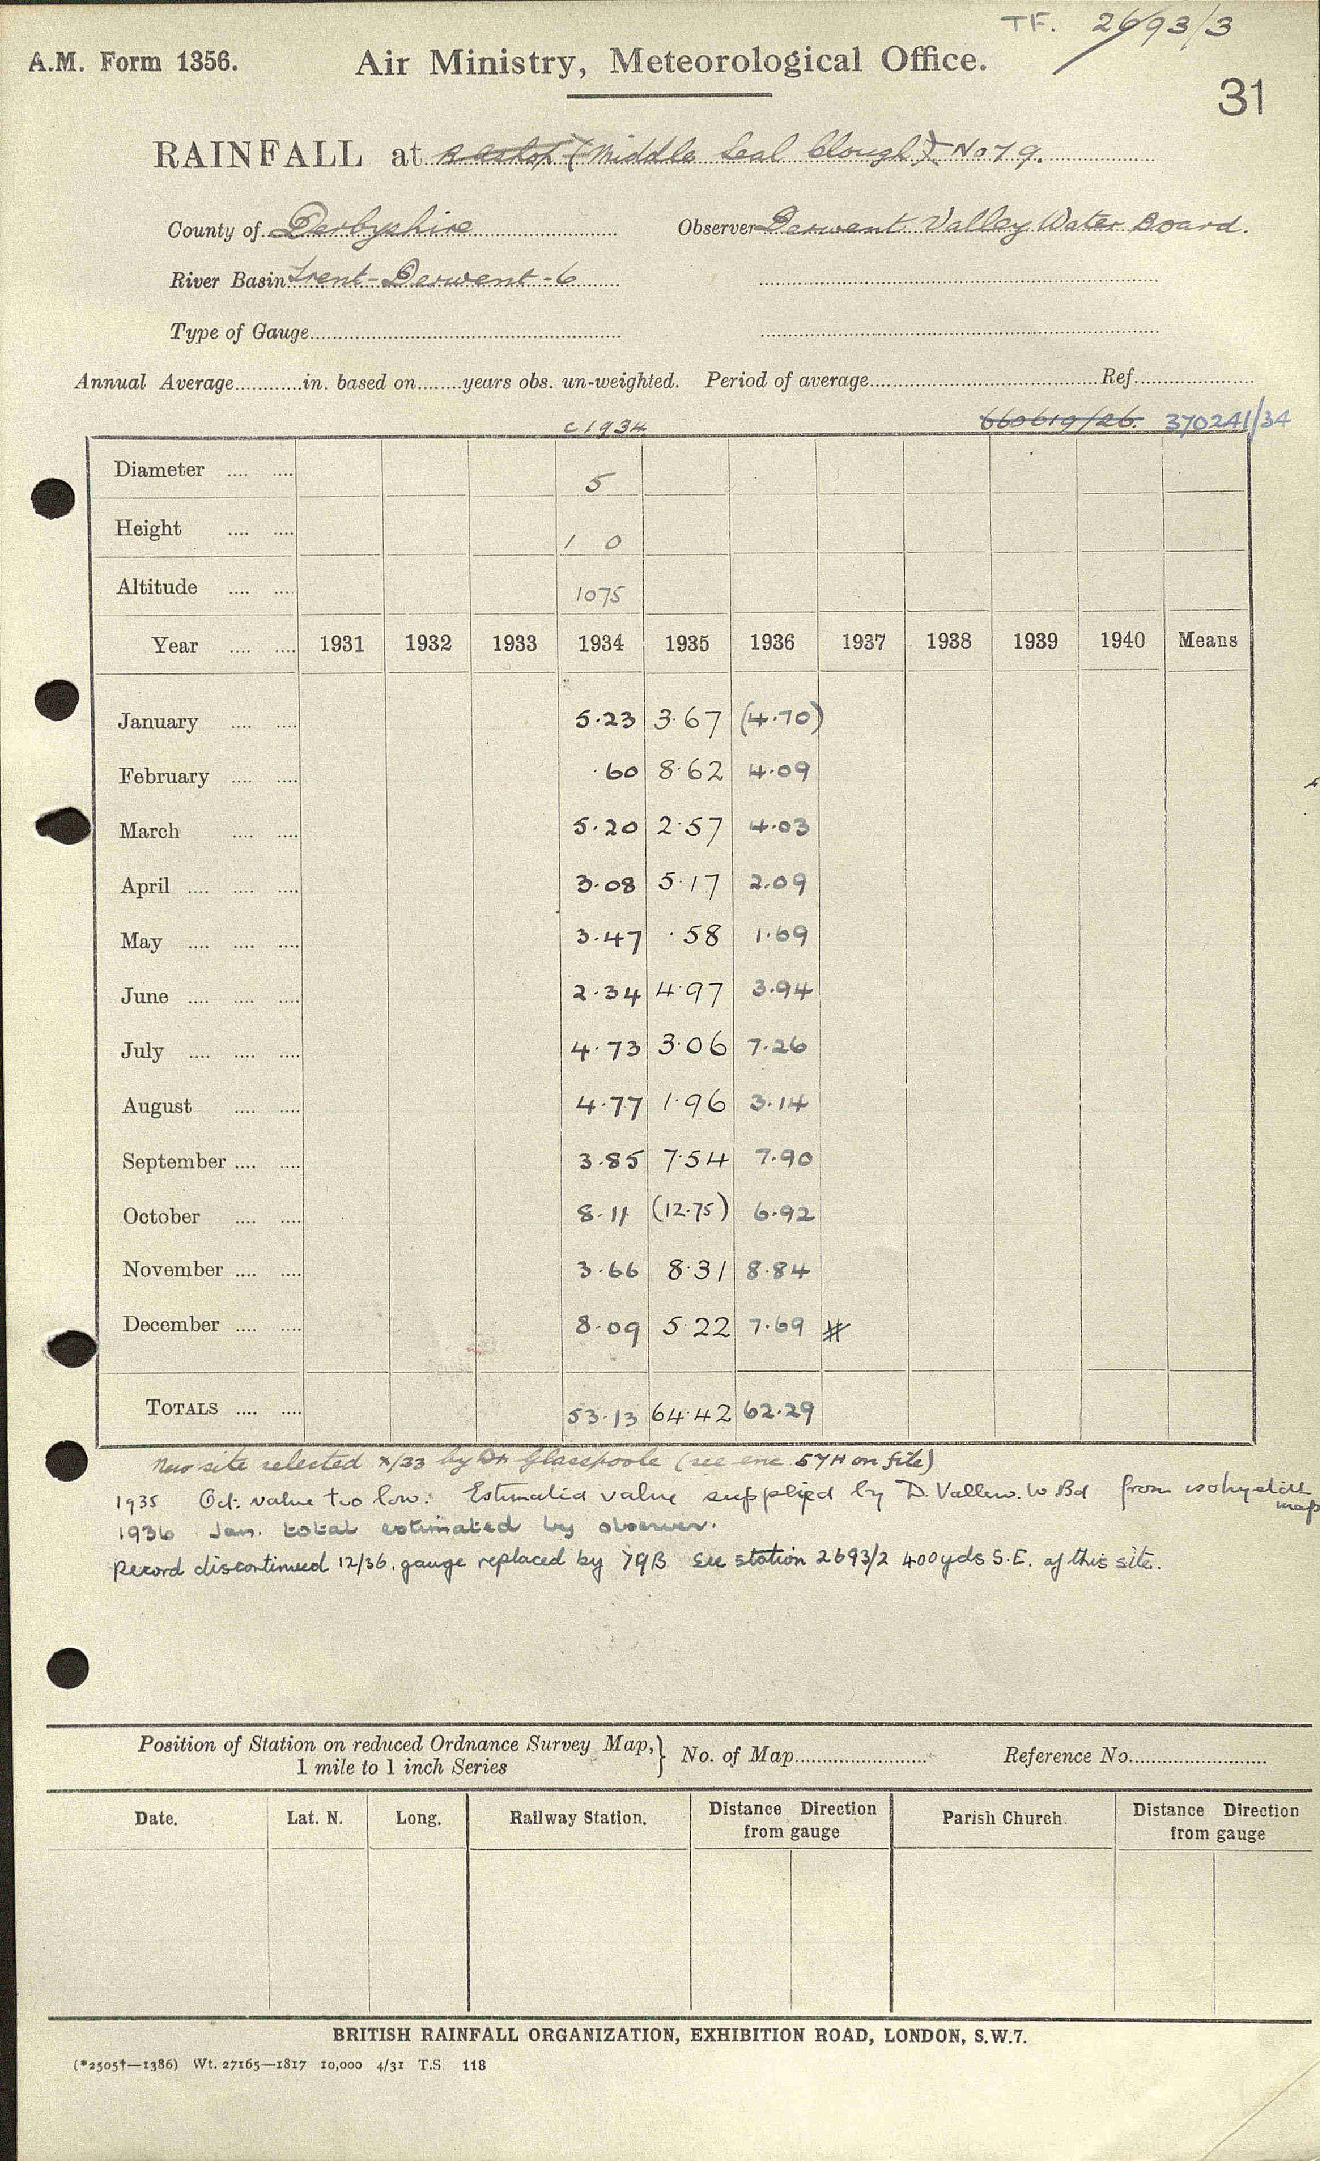 TF. 2693/3
A.M. Form 1356. Air Ministry, Meteorological Office.
31
RAINFALL at (Middle Seal Clough) No 79.
County of Derbyshire Observer Derwent Valley Water Board.
River Basin Trent - Derwent - 6
Type of Gauge
Annual Average in. based on years obs. un-weighted. Period of average Ref.
c 1934 660619/26. 370241/34
Diameter 5
Height 1 0
Altitude 1075
Year 1931 1932 1933 1934 1935 1936 1937 1938 1939 1940 Means
January 5.23 3.67 (4.70)
February .60 8.62 4.09
March 5.20 2.57 4.03
April 3.08 5.17 2.09
May 3.47 .58 1.69
June 2.34 4.97 3.94
July 4.73 3.06 7.26
August 4.77 1.96 3.14
September 3.85 7.54 7.90
October 8.11 (12.75) 6.92
November 3.66 8.31 8.84
December 8.09 5.22 7.69 #
TOTALS 53.13 64.42 62.29
New site selected x/33 by Dr Glasspoole (see enc 57H on file)
1935 Oct. value too low. Estimated value supplied by D. Valley. W Bd from isohyetal map
1936 Jan. total estimated by observer.
Record discontinued 12/36. gauge replaced by 79B See station 2693/2 400yds S.E. of this site.
Position of Station on reduced Ordnance Survey Map,} No. of Map Reference No.
1 mile to 1 inch Series
Date. Lat. N. Long. Railway Station. Distance Direction from gauge Parish Church. Distance Direction from gauge
BRITISH RAINFALL ORGANIZATION, EXHIBITION ROAD, LONDON, S.W.7.
(*2505†—1386) Wt. 27165—1817 10,000 4/31 T.S. 118